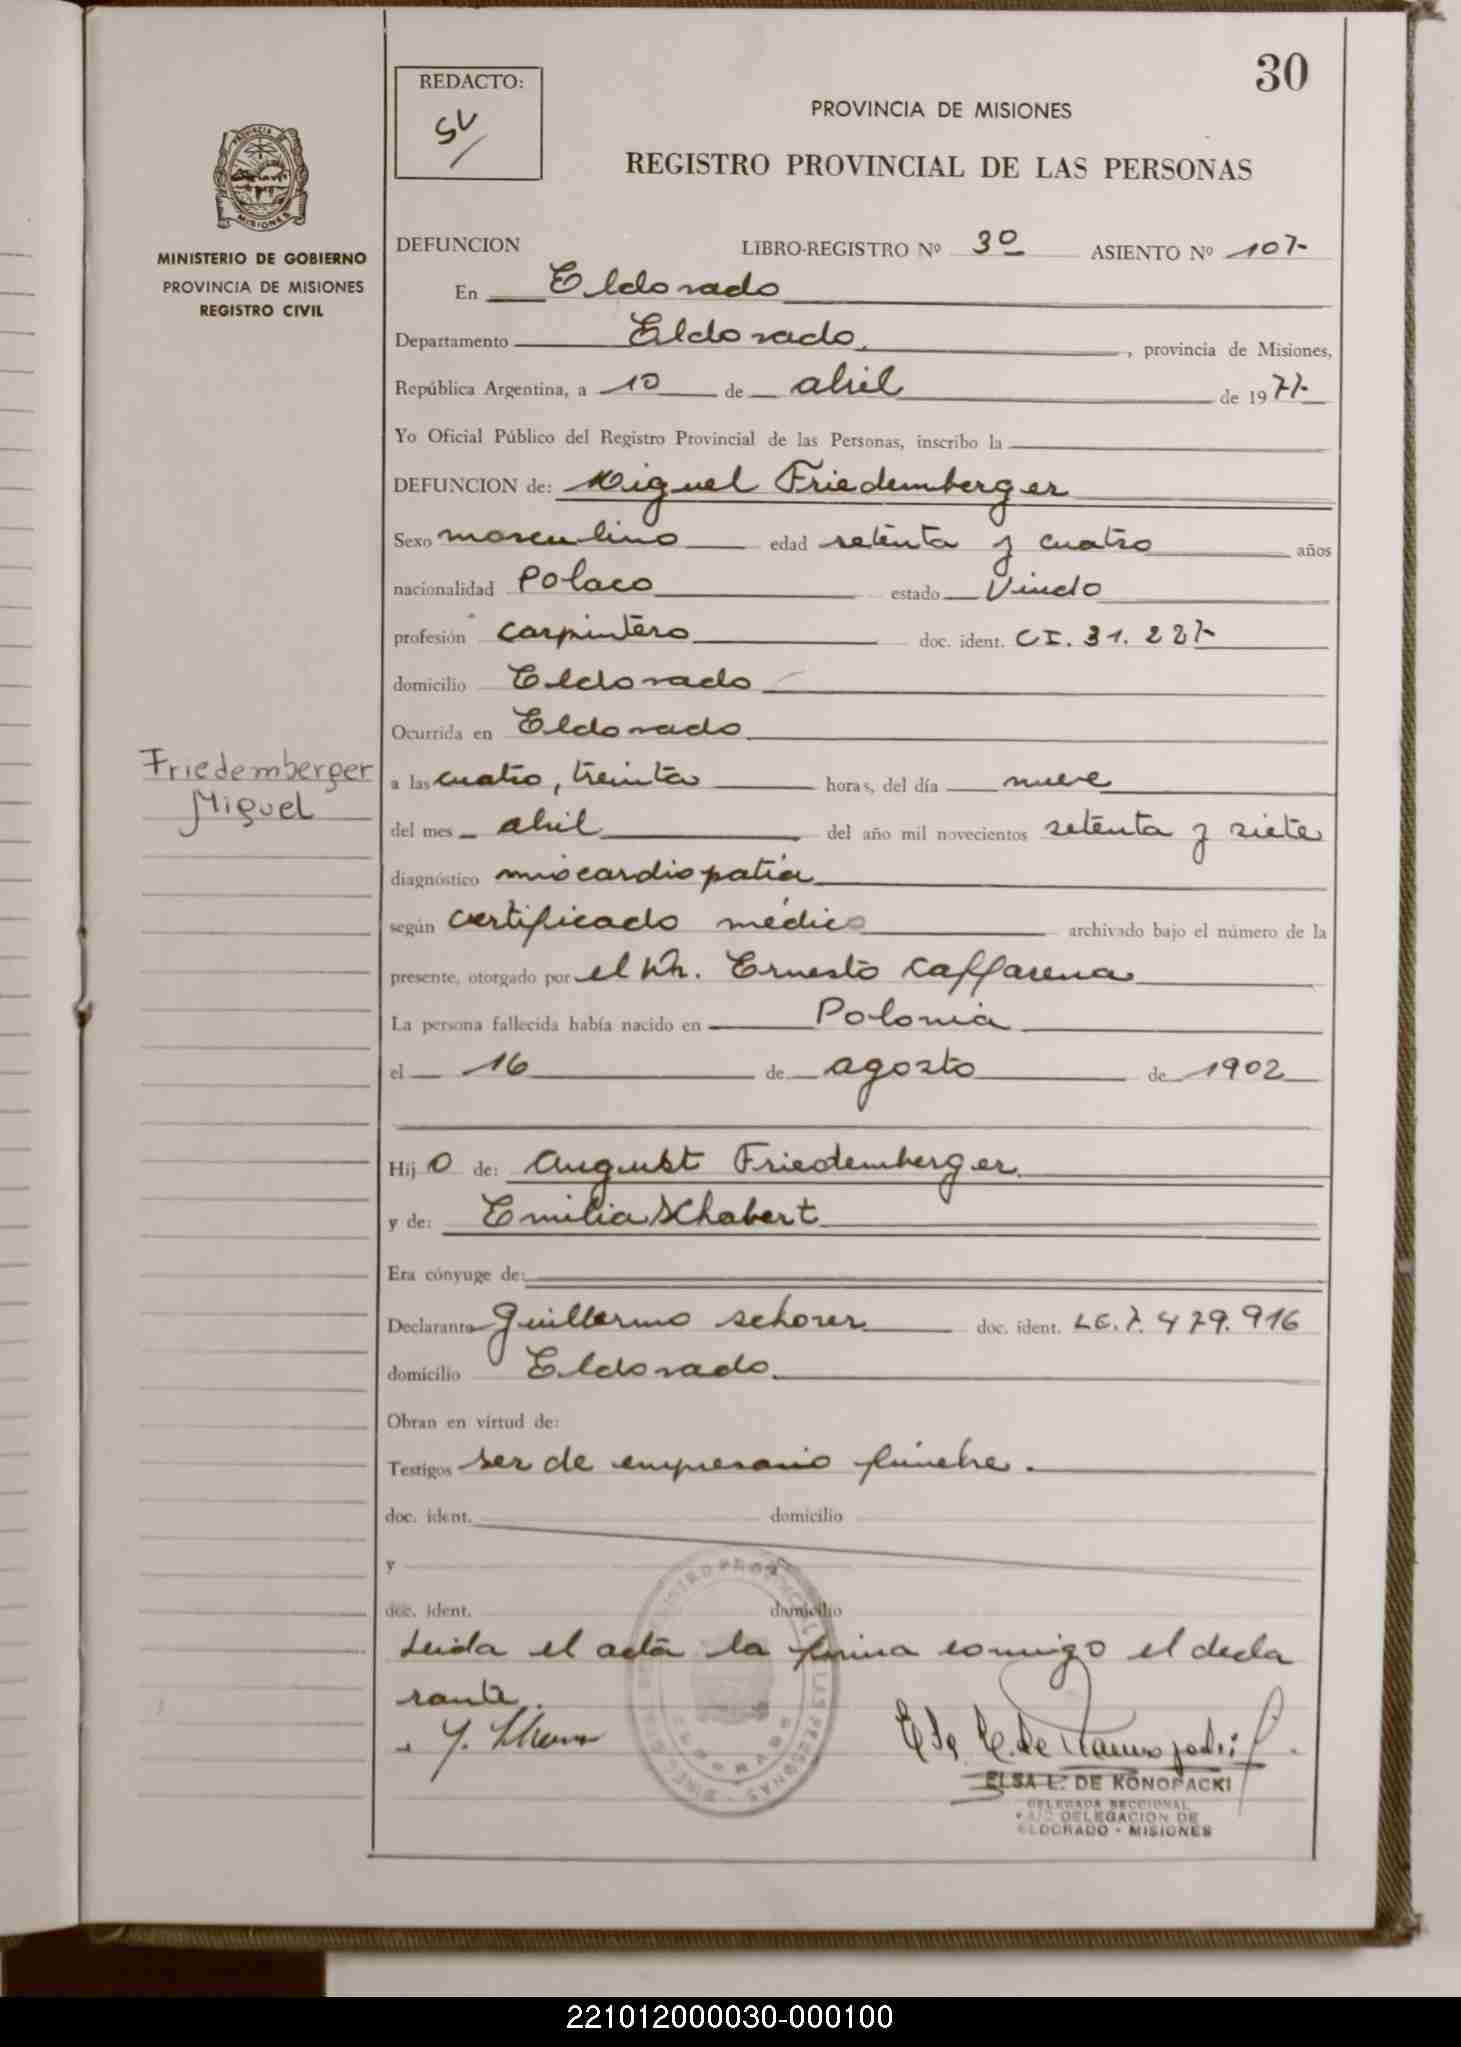 30
REDACTO:
SL/
PROVINCIA DE MISIONES
REGISTRO PROVINCIAL DE LAS PERSONAS
MINISTERIO DE GOBIERNO
PROVINCIA DE MISIONES
REGISTRO CIVIL
DEFUNCION LIBRO-REGISTRO Nº 3º ASIENTO Nº 107-
En Eldorado
Departamento Eldorado, provincia de Misiones,
República Argentina, a 10 de abril de 1977-
Yo Oficial Público del Registro Provincial de las Personas, inscribo la
DEFUNCION de: Miguel Friedemberger
Sexo masculino edad setenta y cuatro años
nacionalidad Polaco estado Viudo
profesión carpintero doc. ident. CI. 31. 227-
domicilio Eldorado
Ocurrida en Eldorado
Friedemberger
Miguel
a las cuatro, treinta horas, del día nueve
del mes abril del año mil novecientos setenta y siete
diagnóstico miocardiopatía
según certificado médico archivado bajo el número de la
presente, otorgado por el Dr. Ernesto Caffarena
La persona fallecida había nacido en Polonia
el 16 de agosto de 1902
Hij o de: August Friedemberger
y de: Emilia Schabert
Era cónyuge de:
Declarante Guillermo Schorer doc. ident. LE. 7. 479. 916
domicilio Eldorado
Obran en virtud de:
Testigos ser de empresario fúnebre.
doc. ident. domicilio
y
doc. ident. domicilio
Leida el acta la firma conmigo el decla
rante.
ELSA L. DE KONOPACKI
DELEGADA SECCIONAL
DELEGACION DE
ELDORADO - MISIONES
221012000030-000100